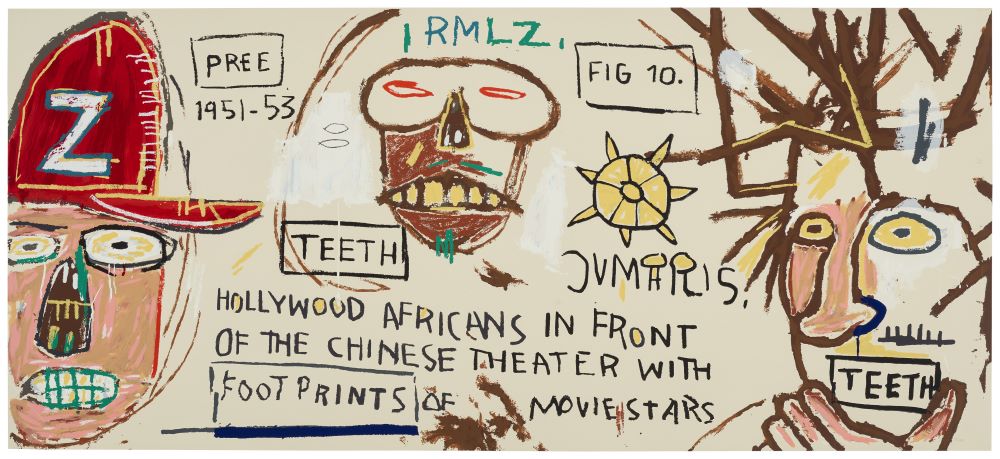 Z
PREE
1951-53
RMLZ.
FIG 10.
TEETH
JVMARIS.
HOLLYWOOD AFRICANS IN FRONT
OF THE CHINESE THEATER WITH
FOOTPRINTS OF MOVIE STARS
TEETH